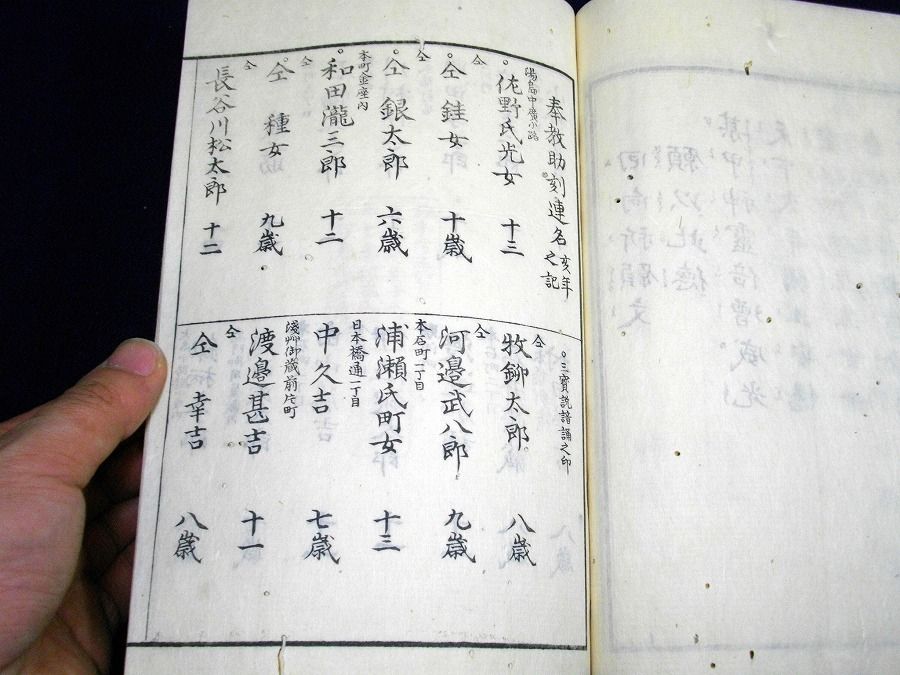 奉教助刻連名之記 亥年
湯島中廣小路
佐野氏光女 十三
仝
仝 銈女 十歳
仝
仝 銀太郎 六歳
本町金座内
和田瀧三郎 十二
仝
仝 種女 九歳
仝
長谷川松太郎 十二
三寶説諳誦之印
仝
牧鉚太郎 八歳
仝
河邉武八郎 九歳
本石町二丁目
浦瀬氏町女 十三
日本橋通一丁目
中久吉 七歳
淺艸御蔵前片町
渡邉甚吉 十一
仝
仝 幸吉 八歳